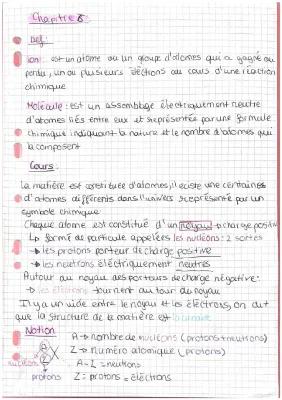 Chapitre 8
Def:
ion: est un atome ou un groupe d'atomes qui a gagné ou
perdu, un ou plusieurs électrons au cours d'une réaction
chimique
Molécule: est un assemblage électriquement neutre
d'atomes liés entre eux et représentée par une formule
chimique indiquant la nature et le nombre d'atomes qui
la composent
Cours:
la matière est constituée d'atomes, il existe une certaines
d'atomes différents dans l'univers représenté par un
symbole chimique
Chaque atome est constitué d'un noyau → charge positiv
↳ formé de particule appelées les nucléons: 2 sortes
→ les protons porteur de charge positive
→ les neutrons électriquement neutres
Autour du noyau des porteurs de charge négative:
↳ les électrons tournent autour du noyau
Il y a un vide entre le noyau et les électrons, on dit
que la structure de la matière est lacunaire
Notion
A → nombre de nucléons (protons + neutrons)
Z → numéro atomique (protons)
nucléons A - Z = neutrons
protons Z = protons = électrons